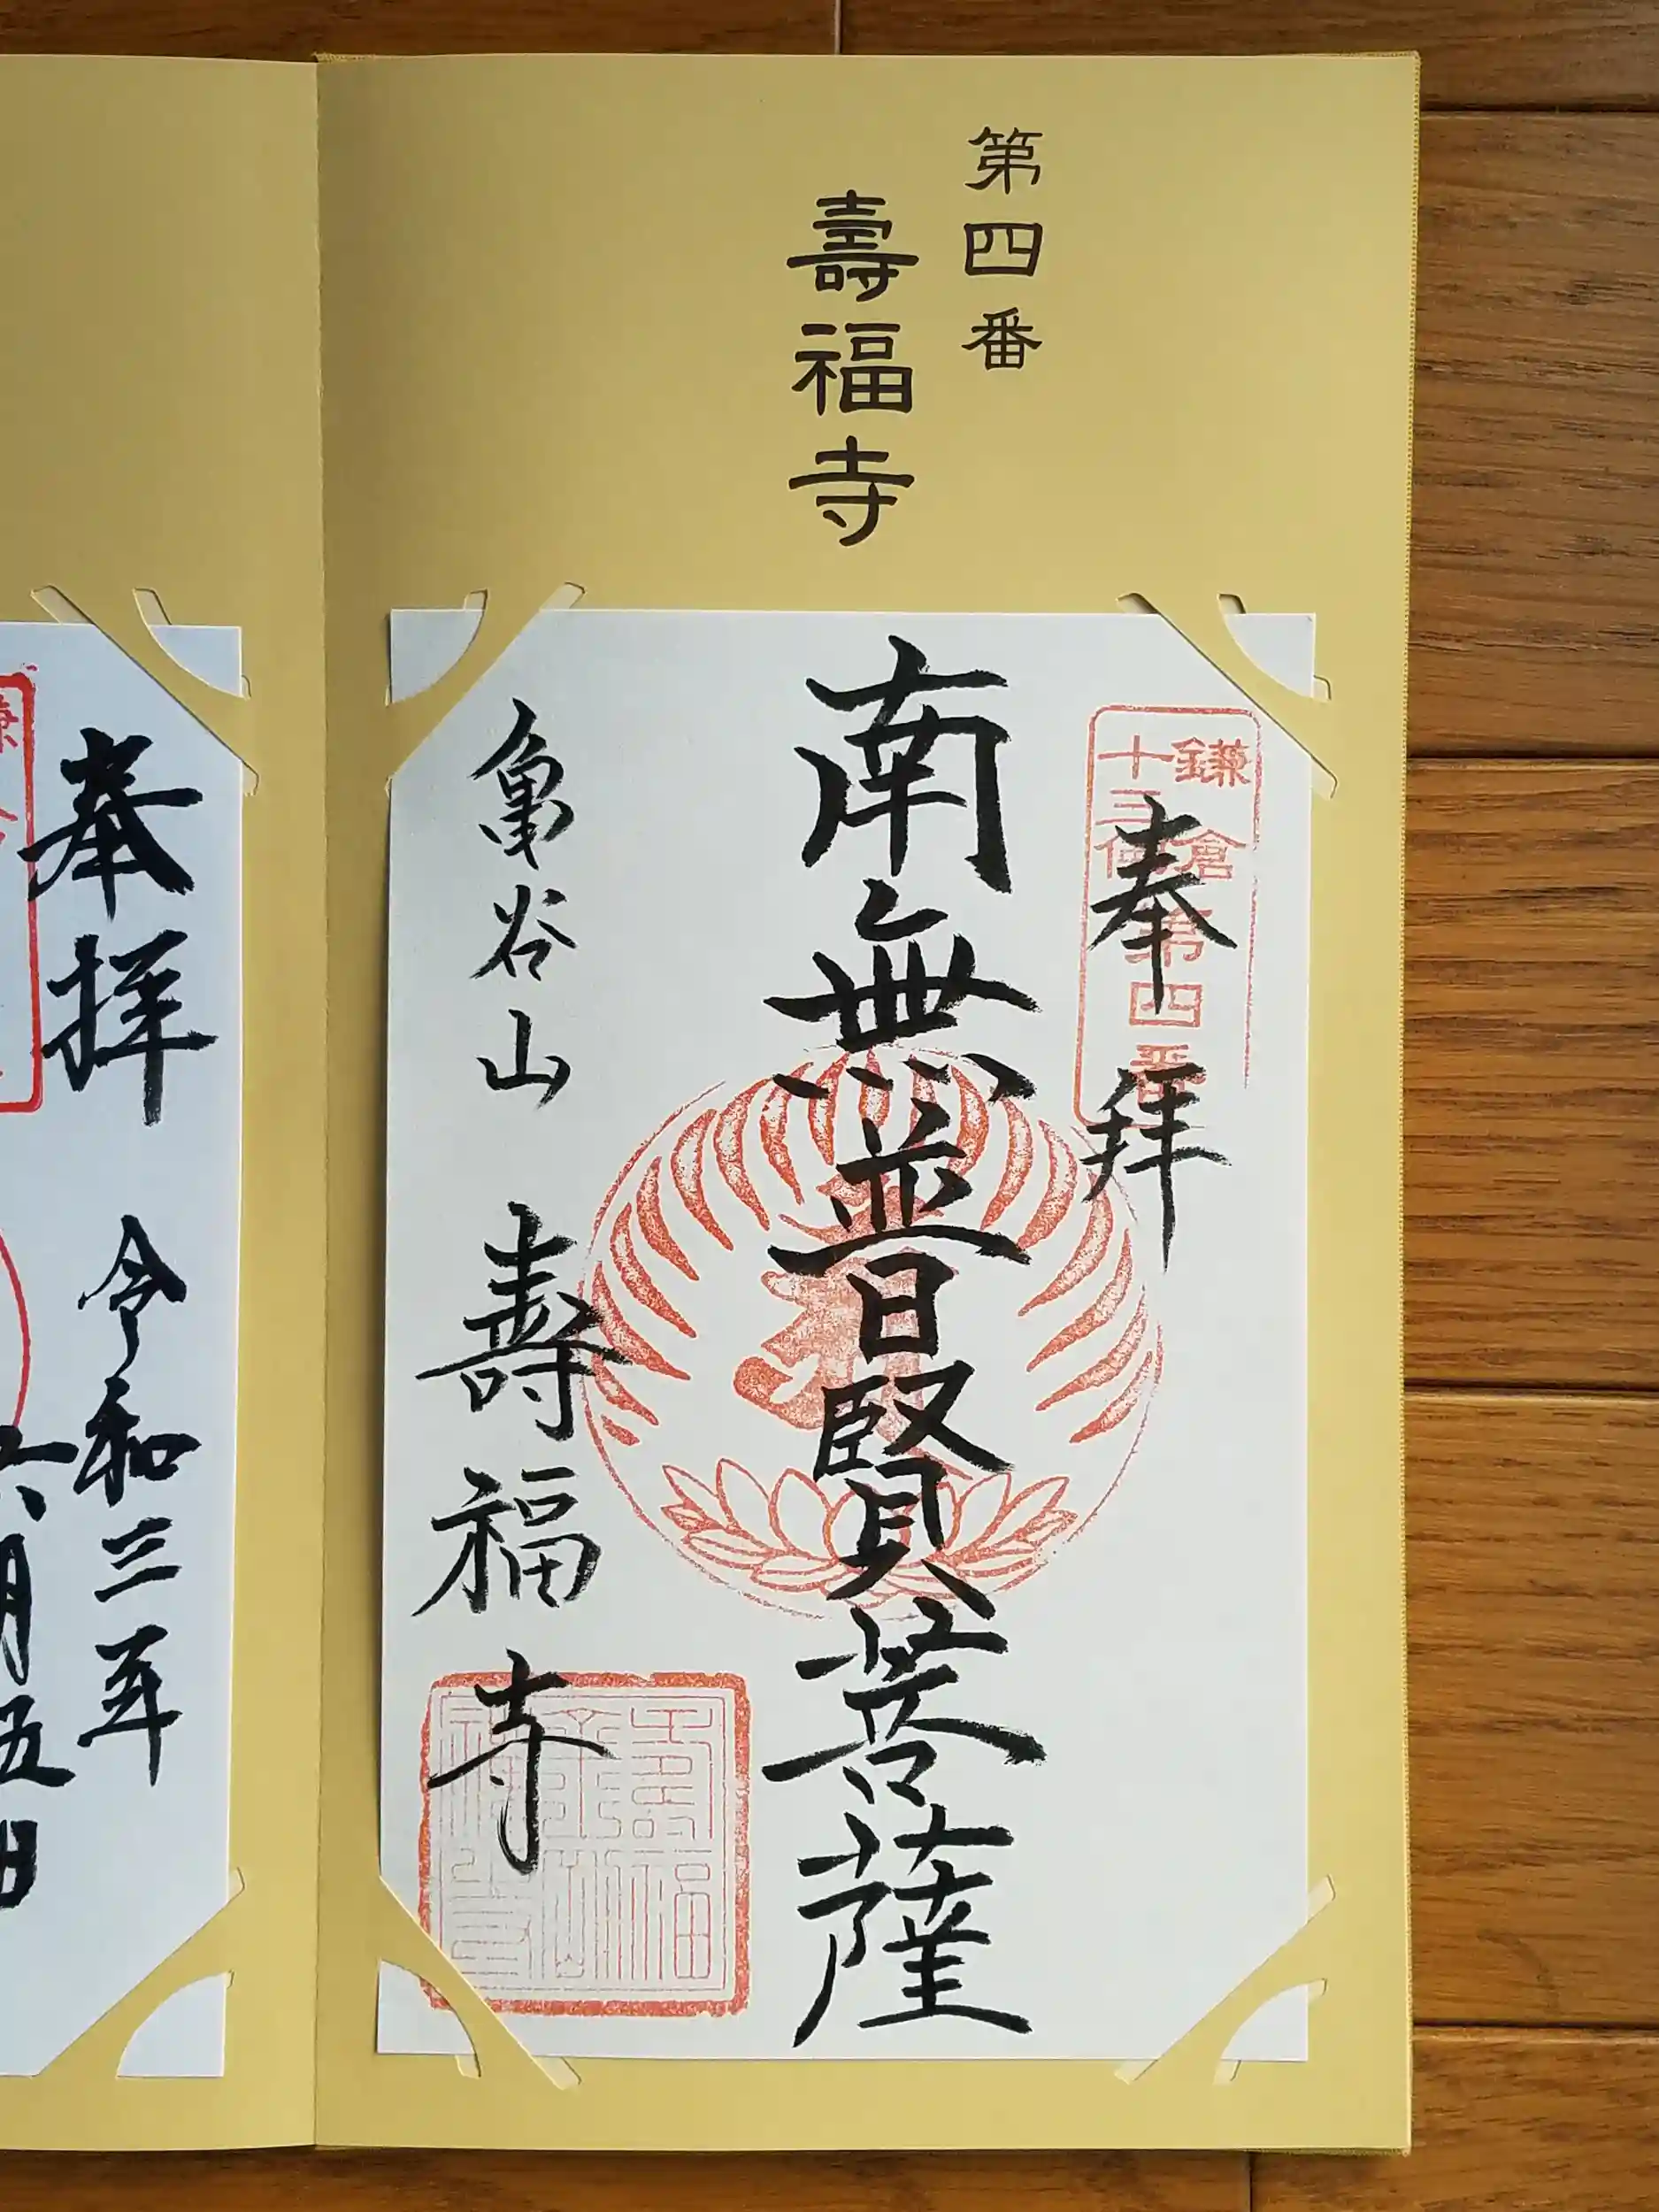 第四番
壽福寺
鎌倉
十三佛
第四番
奉拜
南無普賢菩薩
亀谷山 壽福寺
奉拝
令和三年
六月五日